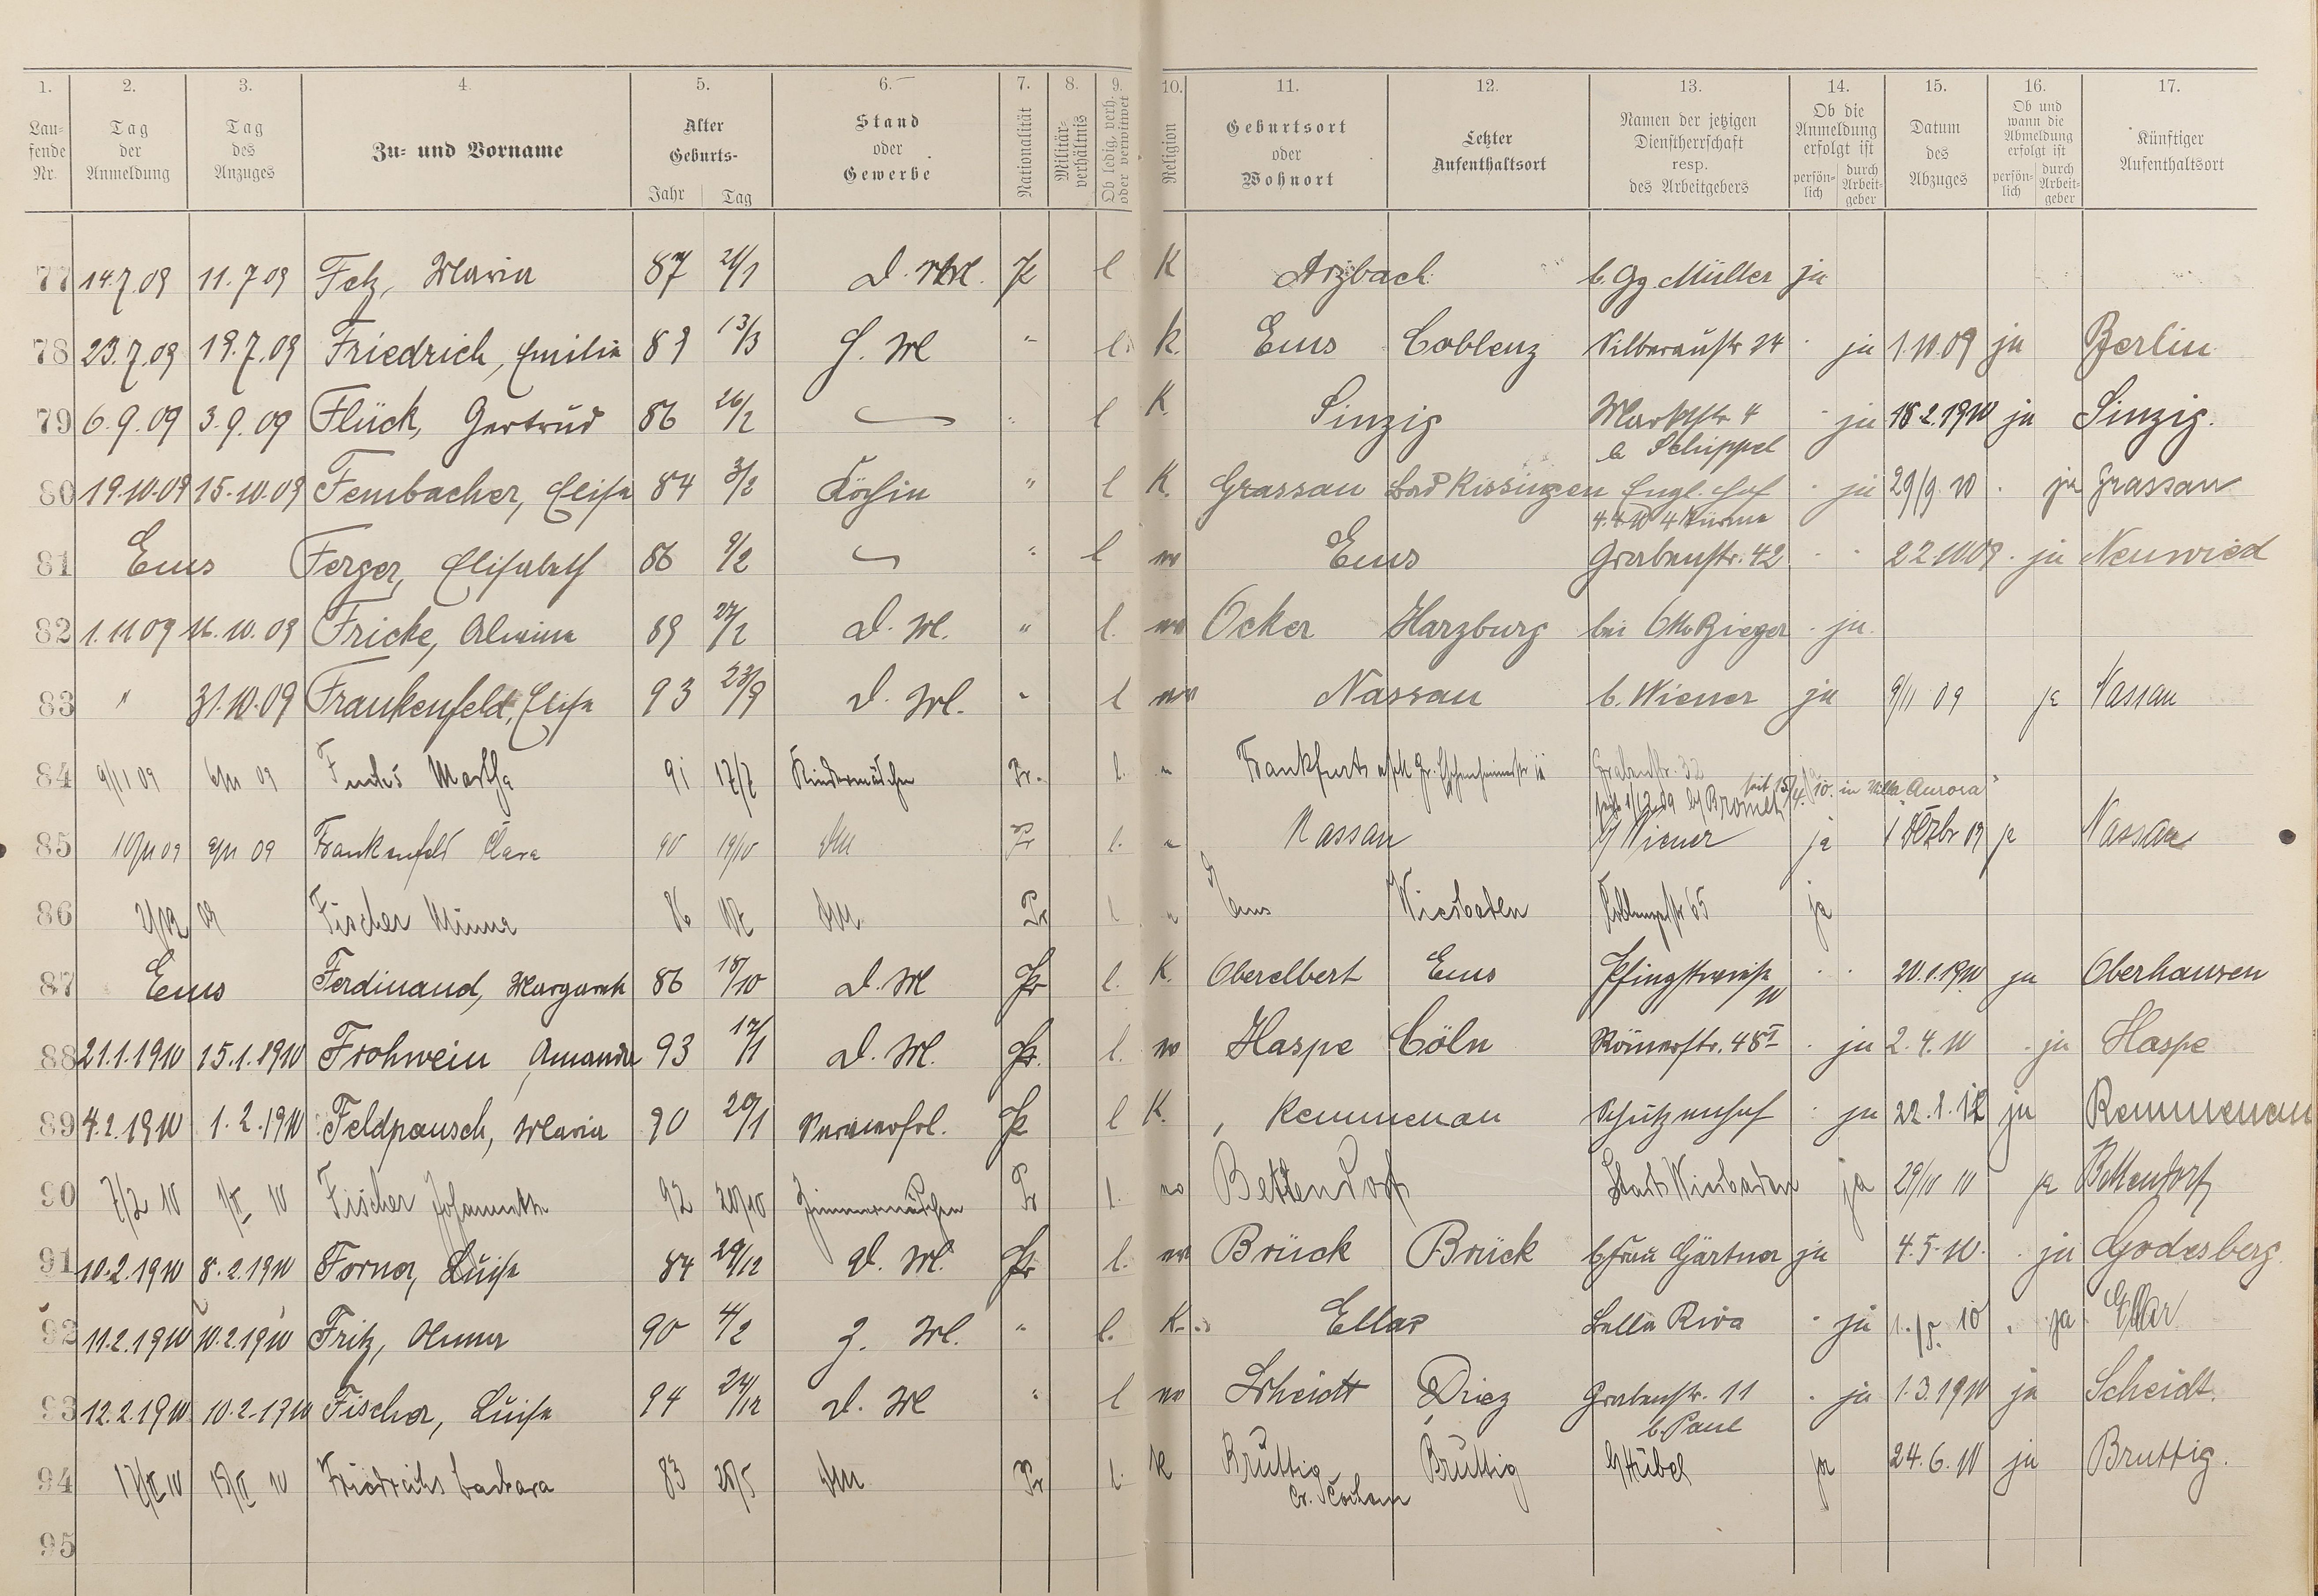 1. 2. 3. 4. 5. 6. 7. 8. 9. 10. 11. 12. 13. 14. 15. 16. 17.
Lau-
fende
Nr.
Tag
der
Anmeldung
Tag
des
Anzuges
Zu- und Vorname
Alter
Geburts-
Jahr Tag
Stand
oder
Gewerbe
Nationalität
Militär-
verhältnis
Ob ledig, verh.
oder verwitwet
Religion
Geburtsort
oder
Wohnort
Letzter
Aufenthaltsort
Namen der jetzigen
Dienstherrschaft
resp.
des Arbeitgebers
Ob die
Anmeldung
erfolgt ist
persön-
lich
durch
Arbeit-
geber
Datum
des
Abzuges
Ob und
wann die
Abmeldung
erfolgt ist
persön-
lich
durch
Arbeit-
geber
Künftiger
Aufenthaltsort
77 14.7.09 11.7.09 Fetz, Maria 87 21/1 D. M. Pr l K Arzbach b. Gg. Müller ja
78 23.7.09 19.7.09 Friedrich, Emilie 89 13/3 H. M " l. K. Ems Coblenz Silberaustr 24 ja 1.10.09 ja Berlin
79 6.9.09 3.9.09 Flück, Gertrud 86 26/2 " l K. Sinzig Marktstr 4 ja 18.2.1910 ja Sinzig.
b Schippel
80 19.10.09 15.10.09 Fembacher, Elise 84 3/2 Köchin " l K. Grassau Bad Kissingen Engl. Hof ja 29/9.10 ja Grassau
4.4.10 4 Türme
81 Ems Ferger, Elisabeth 86 9/2 " l ev Ems Grabenstr. 42 22.10.09 ja Neuwied
82 1.11.09 16.10.09 Fricke, Alwine 89 27/2 D. M. " l. ev Ocker Harzburg bei Otto Bieger ja
83 " 31.10.09 Frankenfeld, Elise 93 23/9 D. M. " l ev Nassau b. Wiener ja 9/11 09 ja Nassau
84 9/11 09 6/11 09 Fuchs Martha 91 17/7 Kindermädchen Pr. l. Frankfurt Gr. Eschenheimerstr Grabenstr. 32
seit 1/12 09 seit 15/4. 10. in Villa Aurora
85 10/11 09 9/11 09 Frankenfeld Clara 90 19/10 DM Pr l. Nassau b/ Wiener ja 1 Dezbr 09 ja Nassau
86 2/12 09 Fischer Minna 86 DM Pr l Ems Wiesbaden Coblenzerstr 65 ja
87 Ems Ferdinand, Margareth 86 18/10 D. M Pr l. K. Oberelbert Ems Pfingstwiese 20.1.1910 ja Oberhausen
10
88 21.1.1910 15.1.1910 Frohwein Amanda 93 17/1 D. M. Pr. l. ev Haspe Cöln Römerstr. 48 I ja 2.4.10 ja Haspe
89 4.2.1910 1.2.1910 Feldpausch, Maria 90 20/1 Servierfrl. Pr l K. Kemmenau Schützenhof ja 22.1.12 ja Kemmenau
90 7/2 10 1/II 10 Fischer Johannette 92 20/10 Zimmermädchen Pr l. ev Bettendorf Stadt Wiesbaden ja 29/10 10 ja Bettendorf
91 10.2.1910 8.2.1910 Forner, Luise 84 29/12 D. M. Pr l. ev Brück Brück b Frau Gärtner ja 4.5.10. ja Godesberg
92 11.2.1910 10.2.1910 Fritz, Anna 90 4/2 Z. M. " l. K. Ellar Bella Riva ja 1./5. 10 ja Ellar
93 12.2.1910 10.2.1910 Fischer, Luise 94 24/12 D. M " l ev Scheidt Diez Grabenstr. 11 ja 1.3.1910 ja Scheidt.
b. Paul
94 17/II 10 15/II 10 Friedrichs Barbara 83 28/5 DM Pr l. K Bruttig Bruttig b/ Hübel ja 24.6.10 ja Bruttig.
Cr. Cochem
95